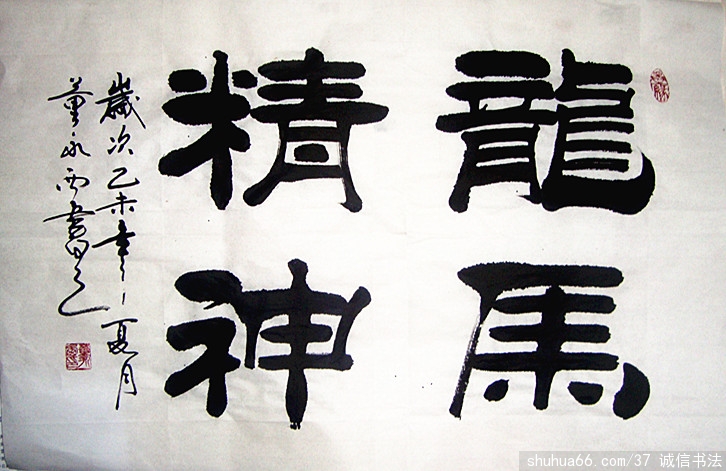 龍馬
精神
歲次乙未年夏月
董永西書之
shuhua66.com/37 诚信书法